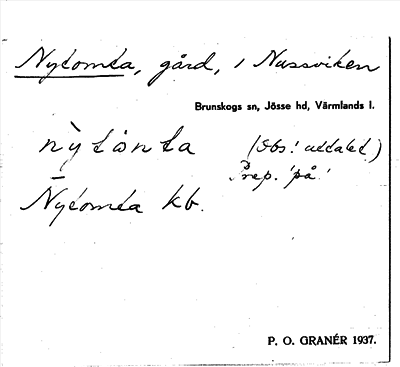 Nytomta, gård, i Nussviken
Brunskogs sn, Jösse hd, Värmlands l.
nỳtònta (Obs! uttalet.)
Prep. 'på'
Nytomta kb.
P. O. GRANÉR 1937.